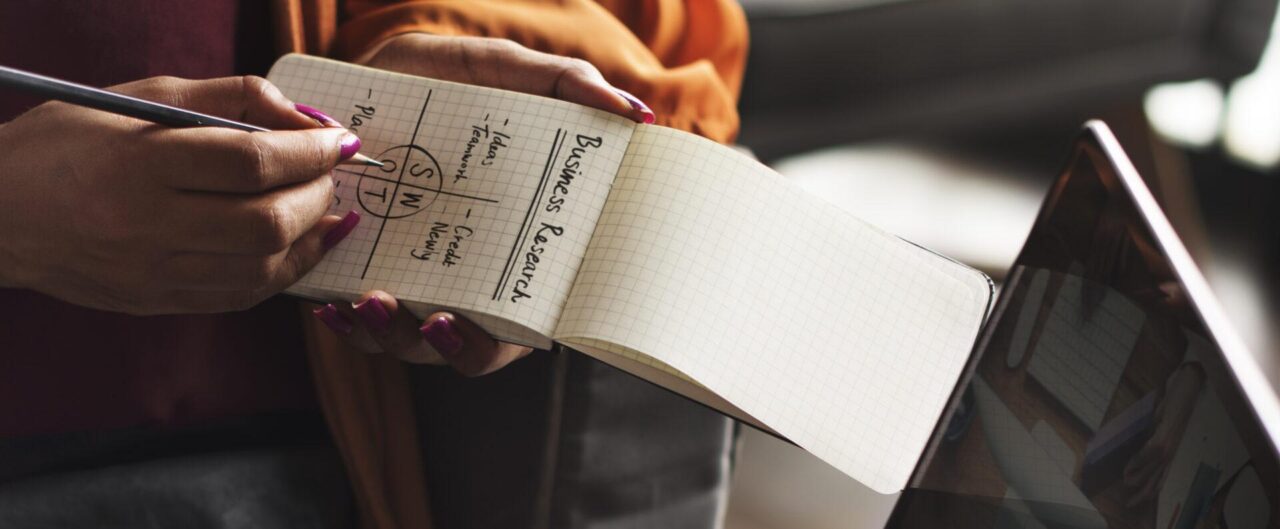 Business Research
- Ideas
- Teamwork
- Credit
Newly
S W
O T